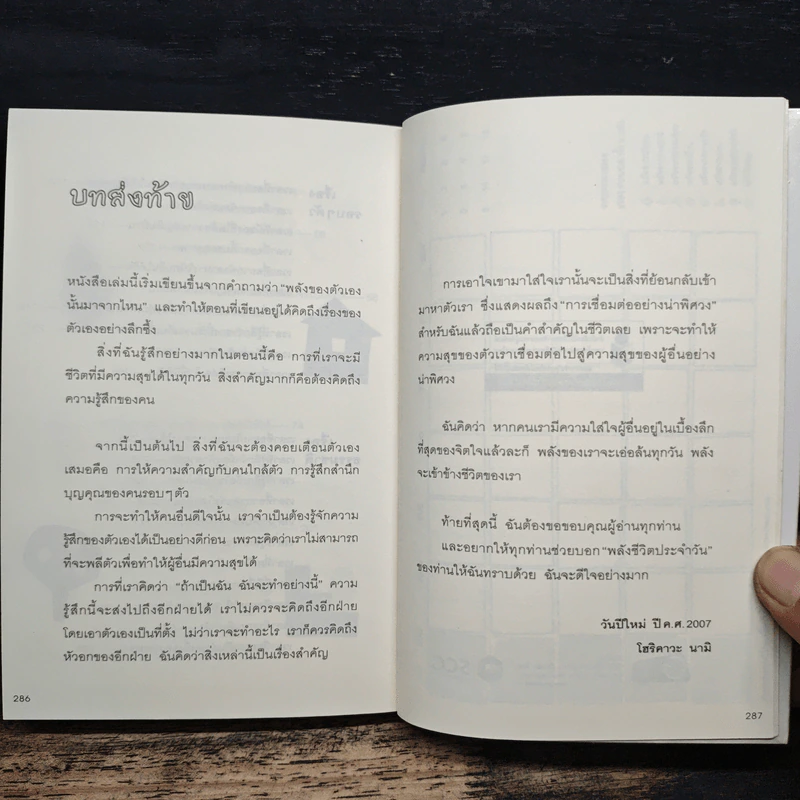 บทส่งท้าย
หนังสือเล่มนี้เริ่มเขียนขึ้นจากคำถามว่า "พลังของตัวเอง
นั้นมาจากไหน" และทำให้ตอนที่เขียนอยู่ได้คิดถึงเรื่องของ
ตัวเองอย่างลึกซึ้ง
สิ่งที่ฉันรู้สึกอย่างมากในตอนนี้คือ การที่เราจะมี
ชีวิตที่มีความสุขได้ในทุกวัน สิ่งสำคัญมากก็คือต้องคิดถึง
ความรู้สึกของคน
จากนี้เป็นต้นไป สิ่งที่ฉันจะต้องคอยเตือนตัวเอง
เสมอคือ การให้ความสำคัญกับคนใกล้ตัว การรู้สึกสำนึก
บุญคุณของคนรอบๆตัว
การจะทำให้คนอื่นดีใจนั้น เราจำเป็นต้องรู้จักความ
รู้สึกของตัวเองได้เป็นอย่างดีก่อน เพราะคิดว่าเราไม่สามารถ
ที่จะพลีตัวเพื่อทำให้ผู้อื่นมีความสุขได้
การที่เราคิดว่า "ถ้าเป็นฉัน ฉันจะทำอย่างนี้" ความ
รู้สึกนี้จะส่งไปถึงอีกฝ่ายได้ เราไม่ควรจะคิดถึงอีกฝ่าย
โดยเอาตัวเองเป็นที่ตั้ง ไม่ว่าเราจะทำอะไร เราก็ควรคิดถึง
หัวอกของอีกฝ่าย ฉันคิดว่าสิ่งเหล่านี้เป็นเรื่องสำคัญ
286
การเอาใจเขามาใส่ใจเรานั้นจะเป็นสิ่งที่ย้อนกลับเข้า
มาหาตัวเรา ซึ่งแสดงผลถึง "การเชื่อมต่ออย่างน่าพิศวง"
สำหรับฉันแล้วถือเป็นคำสำคัญในชีวิตเลย เพราะจะทำให้
ความสุขของตัวเราเชื่อมต่อไปสู่ความสุขของผู้อื่นอย่าง
น่าพิศวง
ฉันคิดว่า หากคนเรามีความใส่ใจผู้อื่นอยู่ในเบื้องลึก
ที่สุดของจิตใจแล้วละก็ พลังของเราจะเอ่อล้นทุกวัน พลัง
จะเข้าข้างชีวิตของเรา
ท้ายที่สุดนี้ ฉันต้องขอขอบคุณผู้อ่านทุกท่าน
และอยากให้ทุกท่านช่วยบอก "พลังชีวิตประจำวัน"
ของท่านให้ฉันทราบด้วย ฉันจะดีใจอย่างมาก
วันปีใหม่ ปี ค.ศ. 2007
โฮริคาวะ นามิ
287